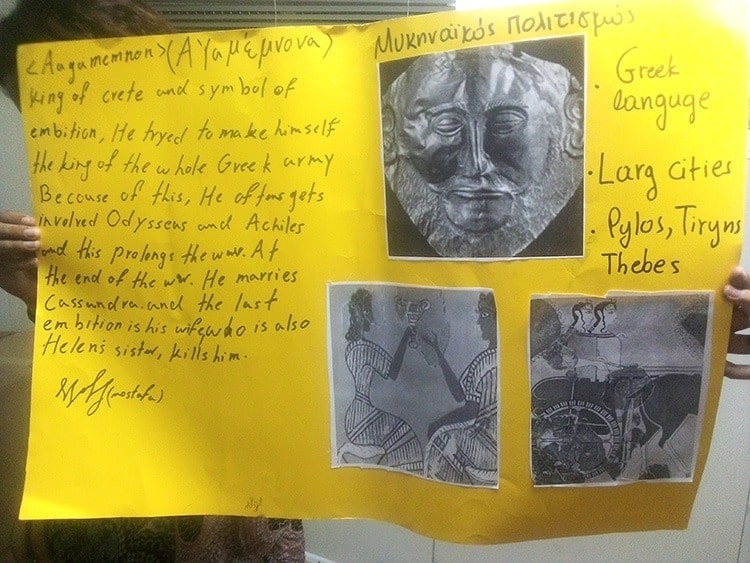 <Aagamemnon> (Αγαμέμνονα)
king of crete and symbol of
embition, He tryed to make himself
the king of the whole Greek army
Becouse of this, He oftens gets
involved Odysseus and Achiles
and this prolongs the war. At
the end of the war. He marries
Cassundra. and the last
embition is his wife, who is also
Helen's sister, kills him.
(mostafa)
Μυκηναϊκός Πολιτισμώς
• Greek
languge
• Larg cities
• Pylos, Tiryns
Thebes